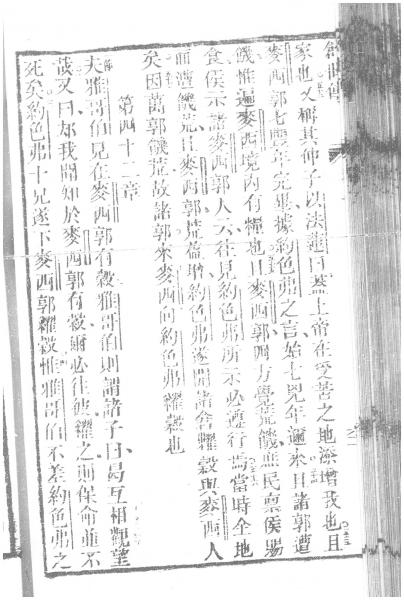 家也又稱其仲子以法蓮曰蓋上帝在受苦之地添增我也且
麥西郭七豐年完畢據約色弗之言始七兇年邇來且諸郭遭
饑惟遍麥西境內有糧也且麥西郭四方舉荒饑庶民稟侯賜
食侯示諸麥西郭人云往見約色弗所示必遵行焉當時全地
面遭饑荒且麥西郭荒益增約色弗遂開諸倉糶穀與麥西人
矣因萬郭饑荒故諸郭來麥西向約色弗糴穀也
第四十二章
夫雅哥伯見在麥西郭有穀雅哥伯則謂諸子曰曷互相觀望
哉又曰却我聞知於麥西郭有穀爾必往彼糴之則保命並不
死矣約色弗十兄遂下麥西郭糴穀惟雅哥伯不差約色弗之